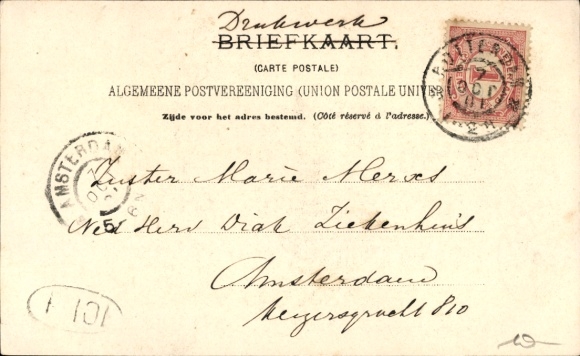 Drukwerk
BRIEFKAART.
(CARTE POSTALE)
ALGEMEENE POSTVEREENIGING (UNION POSTALE UNIVER
Zijde voor het adres bestemd. (Côté réservé à l'adresse.)
ROTTERDAM
AMSTERDAM
Zuster Marie Merxs
Ned Herv Diak Ziekenhuis
Amsterdam
Keizersgracht 810
101